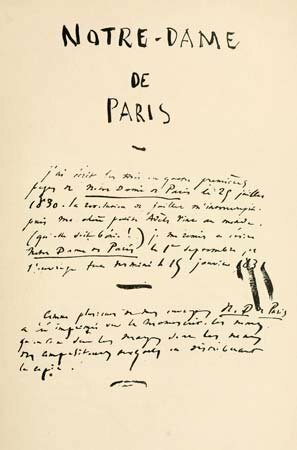 NOTRE-DAME
DE
PARIS
j'ai écrit les trois ou quatre premières
pages de Notre Dame de Paris le 25 juillet
1830. la révolution de juillet m'interrompit.
puis ma chère petite Adèle vint au monde
(qu'elle soit bénie!) je me remis à écrire
Notre Dame de Paris le 1er septembre, et
l'ouvrage fut terminé le 15 janvier 1831
Comme plusieurs de mes ouvrages N. D. de Paris
a été imprimé sur le manuscrit. les
dans les
des compositeurs
la copie.